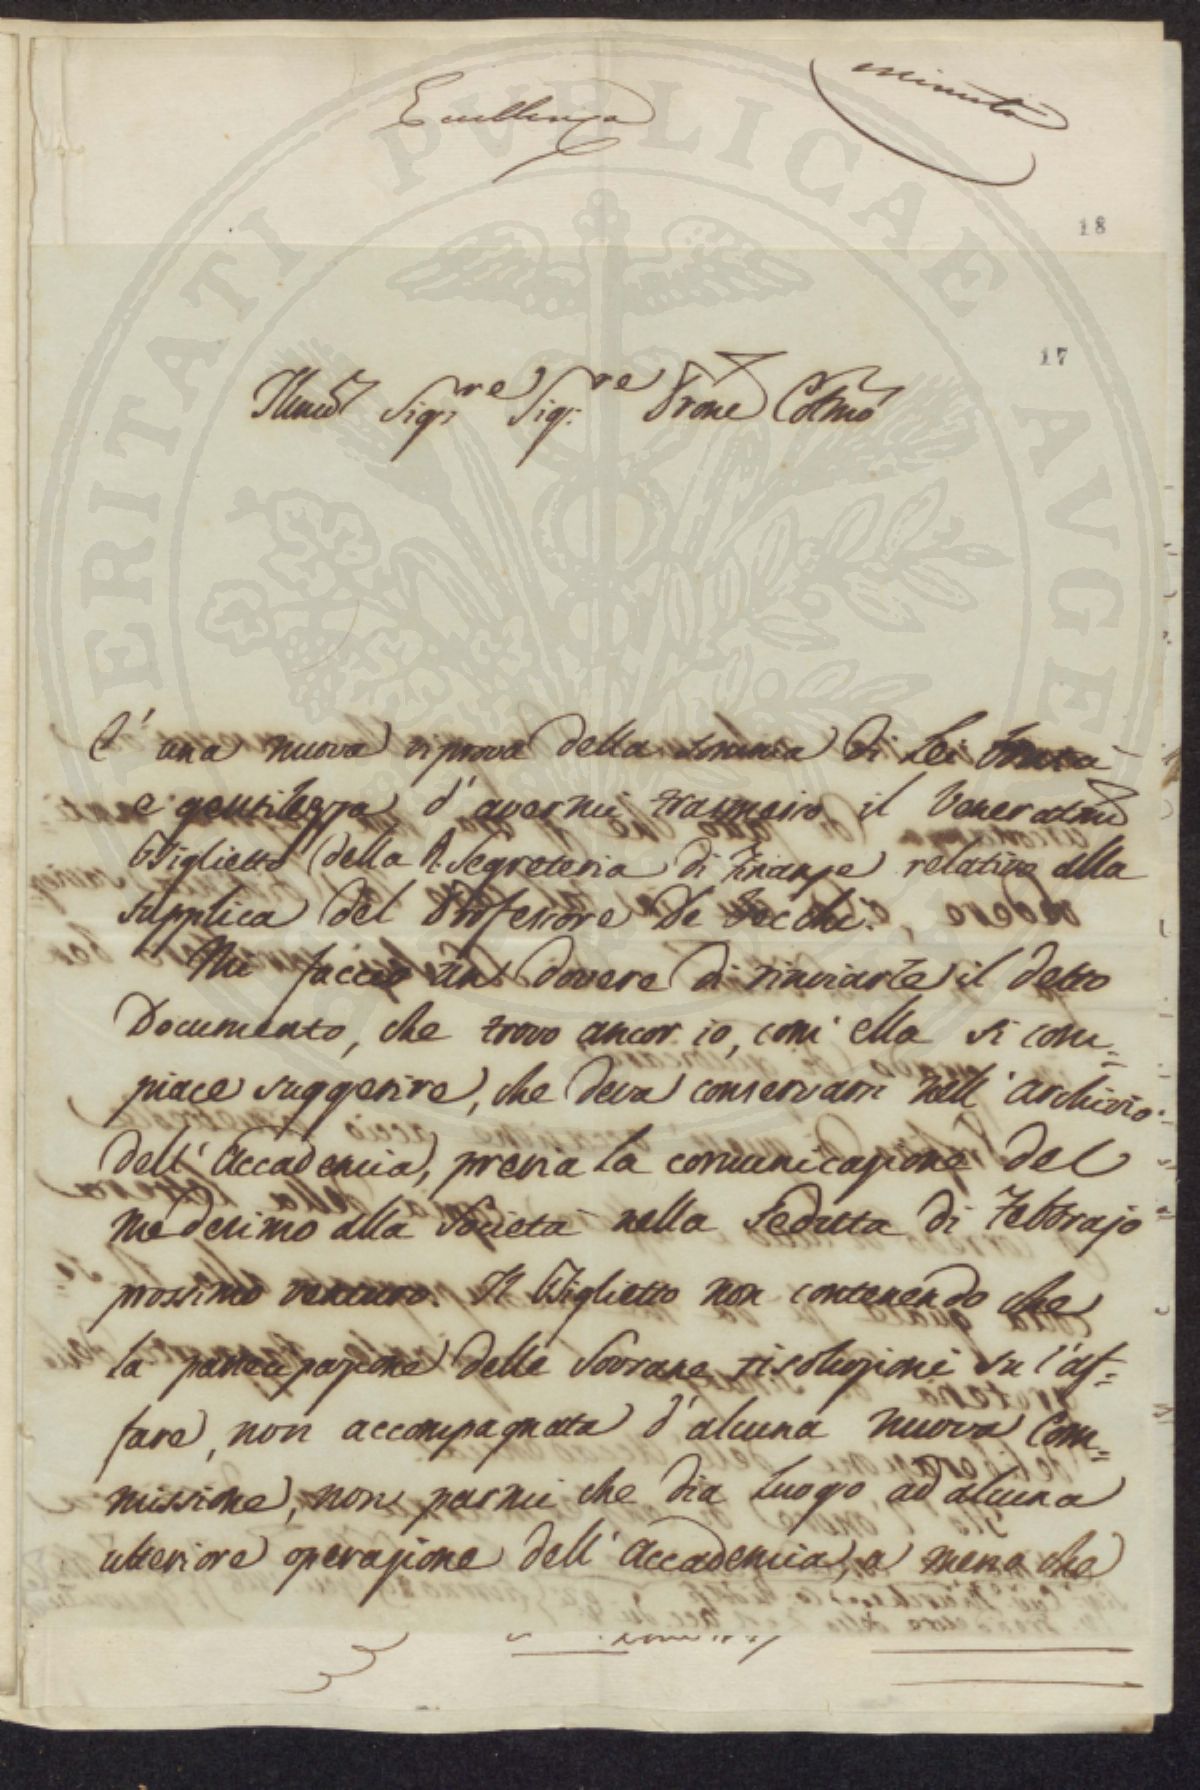 Eccellenza
minuta
18
17
Illmo Sigre Sigre Prone Colmo
È una nuova riprova della somma di Lei bontà
e gentilezza d'avermi trasmesso il Veneratmo
Biglietto della R. Segreteria di Finanze relativo alla
supplica del Professore De Vecchi.
Mi faccio un dovere di rinviarle il detto
Documento, che trovo ancor io, com'ella si com=
piace suggerire, che deva conservarsi nell'Archivio
dell'Accademia, previa la comunicazione del
medesimo alla Società nella Seduta di Febbrajo
prossimo venturo. Il Biglietto non contenendo che
la partecipazione delle Sovrane risoluzioni su l'af=
fare, non accompagnata d'alcuna nuova Com=
missione, non parmi che dia luogo ad alcuna
ulteriore operazione dell'Accademia, a meno che
VERITATI PVBLICAE AVGEN